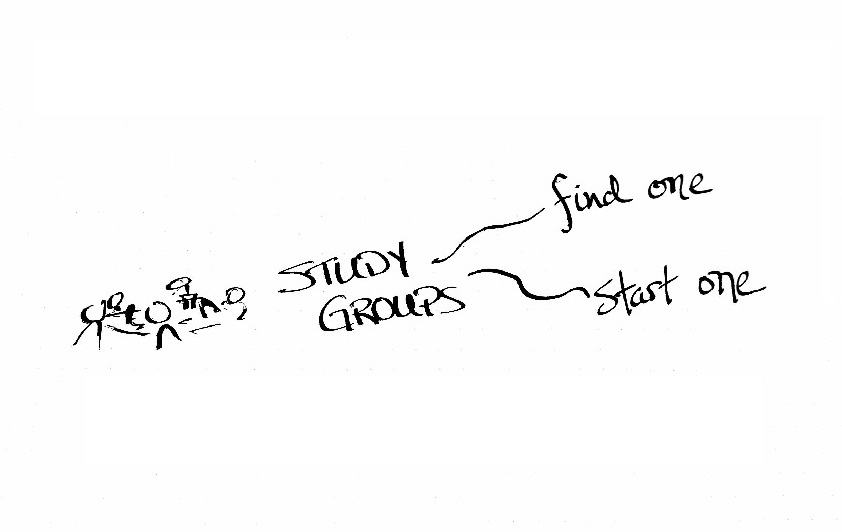 STUDY
GROUPS
find one
start one